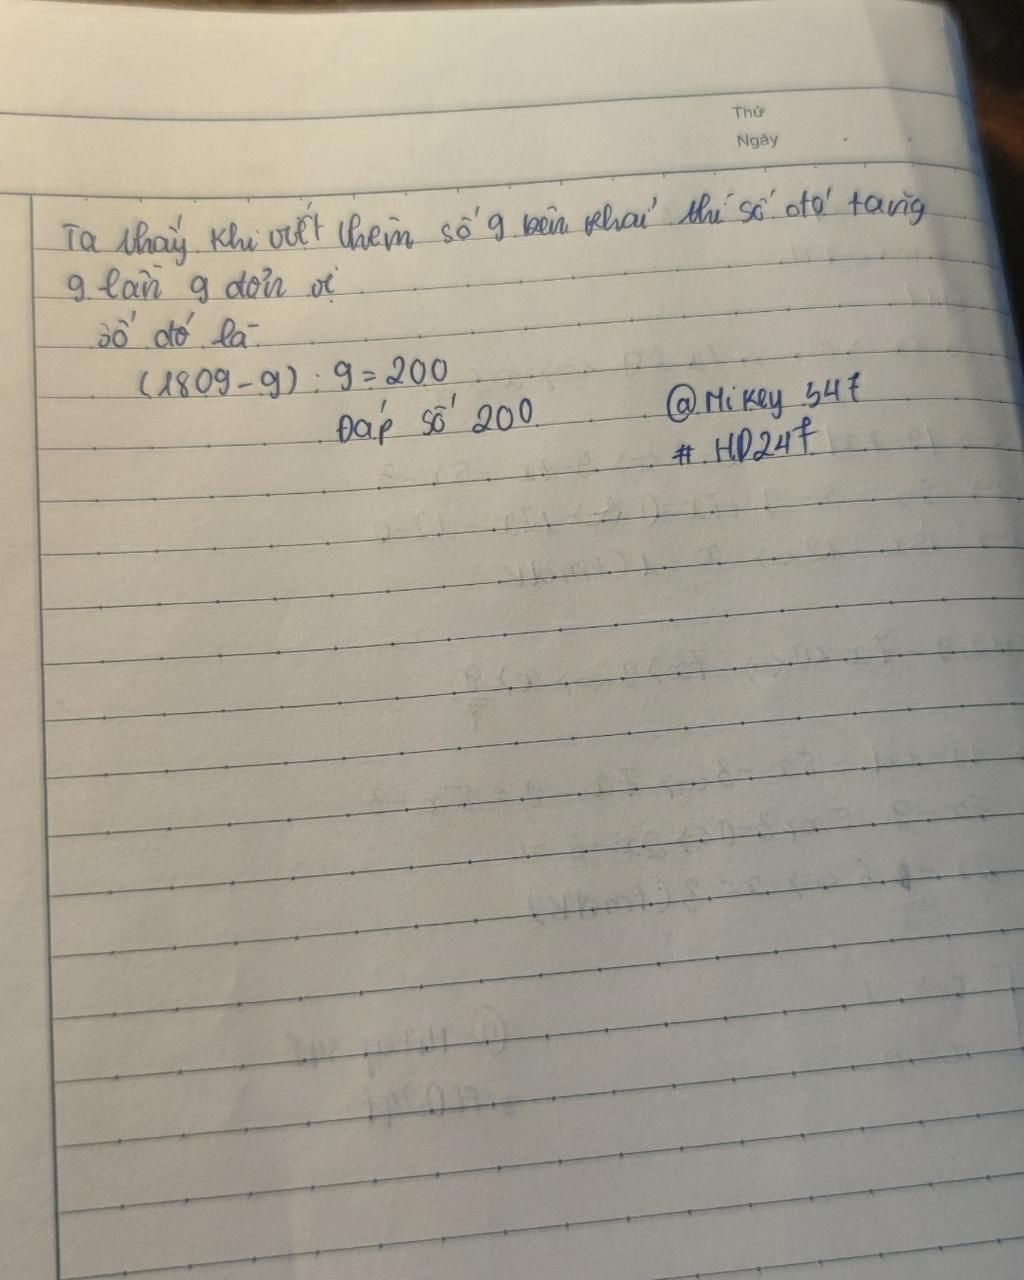 Thứ
Ngày
Ta thấy khi viết thêm số 9 bên phải thì số đó tăng
9 lần 9 đơn vị
số đó là
(1809 - 9) : 9 = 200
Đáp số 200
@Mikey 347
# HD247